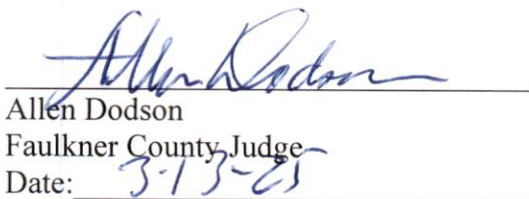 Allen Dodson
Allen Dodson
Faulkner County Judge
Date: 3-13-25